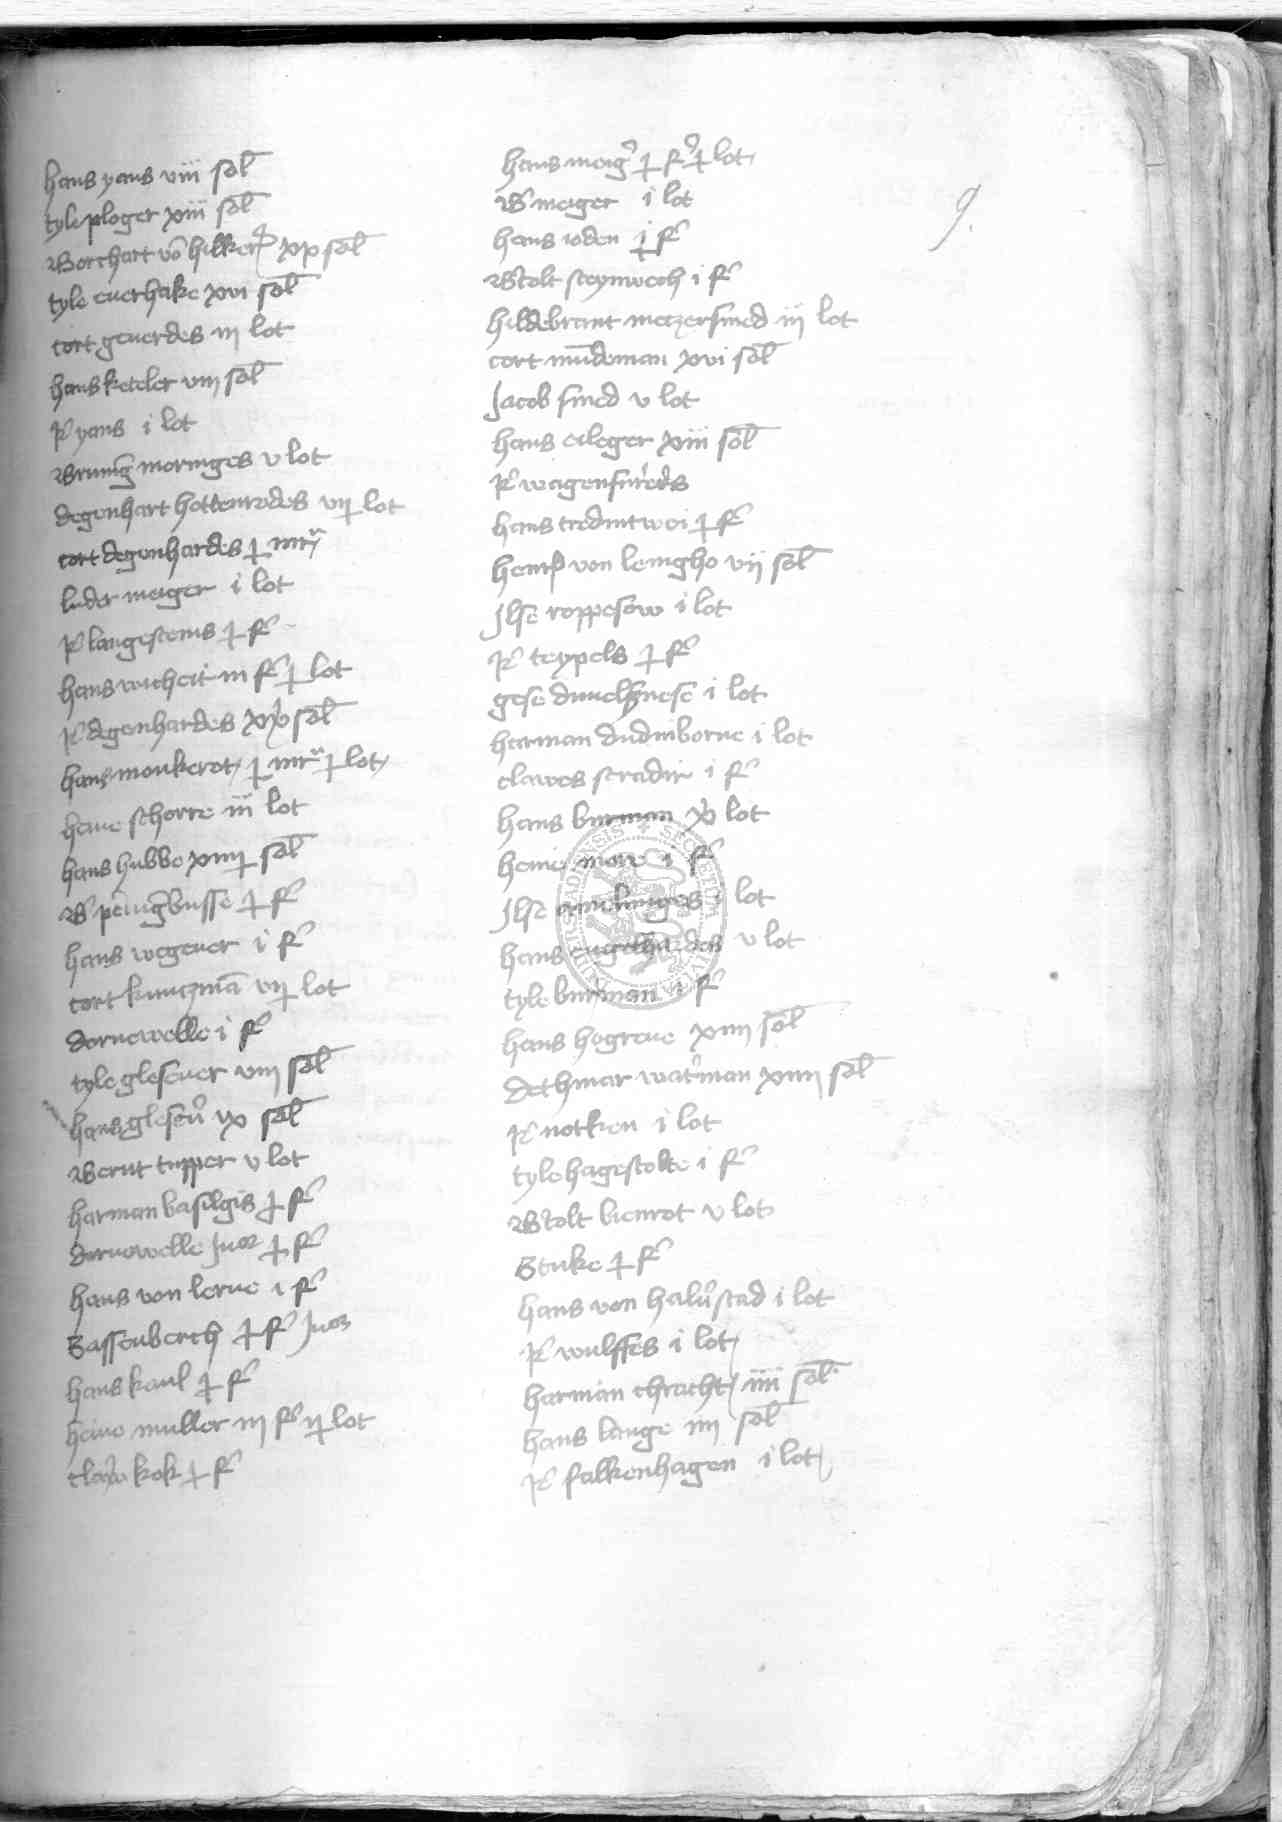 9.
hans yans viii sol
tyle ploger xiii sol
Borchart vo hilker xx sol
tyle euerhake xvi sol
cort geuerdes iii lot
hans keteler viii sol
R yans i lot
Brunig moringes v lot
degenhart hottenrodes vij lot
cort degenhardes mr
luder meiger i lot
R langesteins f
hans wicheit iii f lot
R degenhardes xv sol
hans monkerot mr lot
heine schorre iii lot
hans hubbe xiiii sol
B penigbusse f
hans wegener i f
cort kunczma vij lot
dornewelle i f
tyle glesener viii sol
hans glesen ix sol
Bernt tupper v lot
harman basilgis f
dornewelle Juor f
hans von lerne i f
Sassenberch f Juor
hans kaul f
heine muller iii f ij lot
clawes kok f
hans meig f lot
B meiger i lot
hans roden f
Bertolt steynwech i f
hildebrant metzersmed iii lot
cort mudeman xvi sol
Jacob smed v lot
hans eileger xiii sol
R wagenfureds
hans tredintwei f
henr von lemgho vii sol
Ilse roppesow i lot
R teypels f
gese i lot
harman dudinborne i lot
clawes stradir i f
hans burman xv lot
heine more i f
Ilse amelunges i lot
hans engelhardes v lot
tyle burman i f
hans hogreue xiiii sol
dethmar waterman xiiii sol
R notken i lot
tyle hagestolte i f
Bertolt bienrot v lot
Stuke f
hans von haluerstad i lot
R wulffes i lot
harman thracht iiii sol
hans lange iiii sol
R falkenhagen i lot